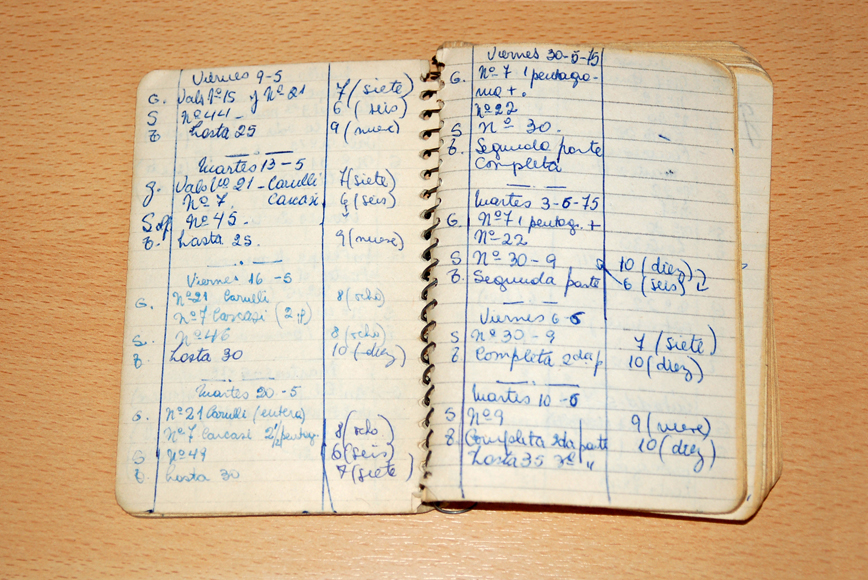 Viernes 9-5
G. Vals Nº15 y Nº21 7 (siete)
S Nº44- 6 (seis)
T. Hasta 25 9 (nueve)
Martes 13-5
G. Vals Nº 21-Carulli 7 (siete)
Nº7 Carcasi 6 (seis)
Solf Nº45.
T. Hasta 25. 9 (nueve)
Viernes 16-5
G. Nº21 Carulli 8 (ocho)
Nº7 Carcasi (2
S. Nº46 8 (ocho)
T. Hasta 30 10 (diez)
Martes 20-5
G. Nº21 Carulli (entera)
Nº7 Carcasi 2 pentag. 8 (ocho)
S Nº49 6 (seis)
T. Hasta 30 7 (siete)
Viernes 30-5-75
G. Nº7 1 pentagra-
ma +.
Nº22
S Nº 30.
T. Segunda parte
Completa
Martes 3-6-75
G. Nº7 1 pentag. +
Nº22
S Nº30-9 10 (diez)
T. Segunda parte 6 (seis)
Viernes 6-6
S Nº30-9 7 (siete)
T Completa 2da p. 10 (diez)
Martes 10-6
S Nº9 9 (nueve)
T. Completa 2da parte 10 (diez)
Hasta 35 3ª "